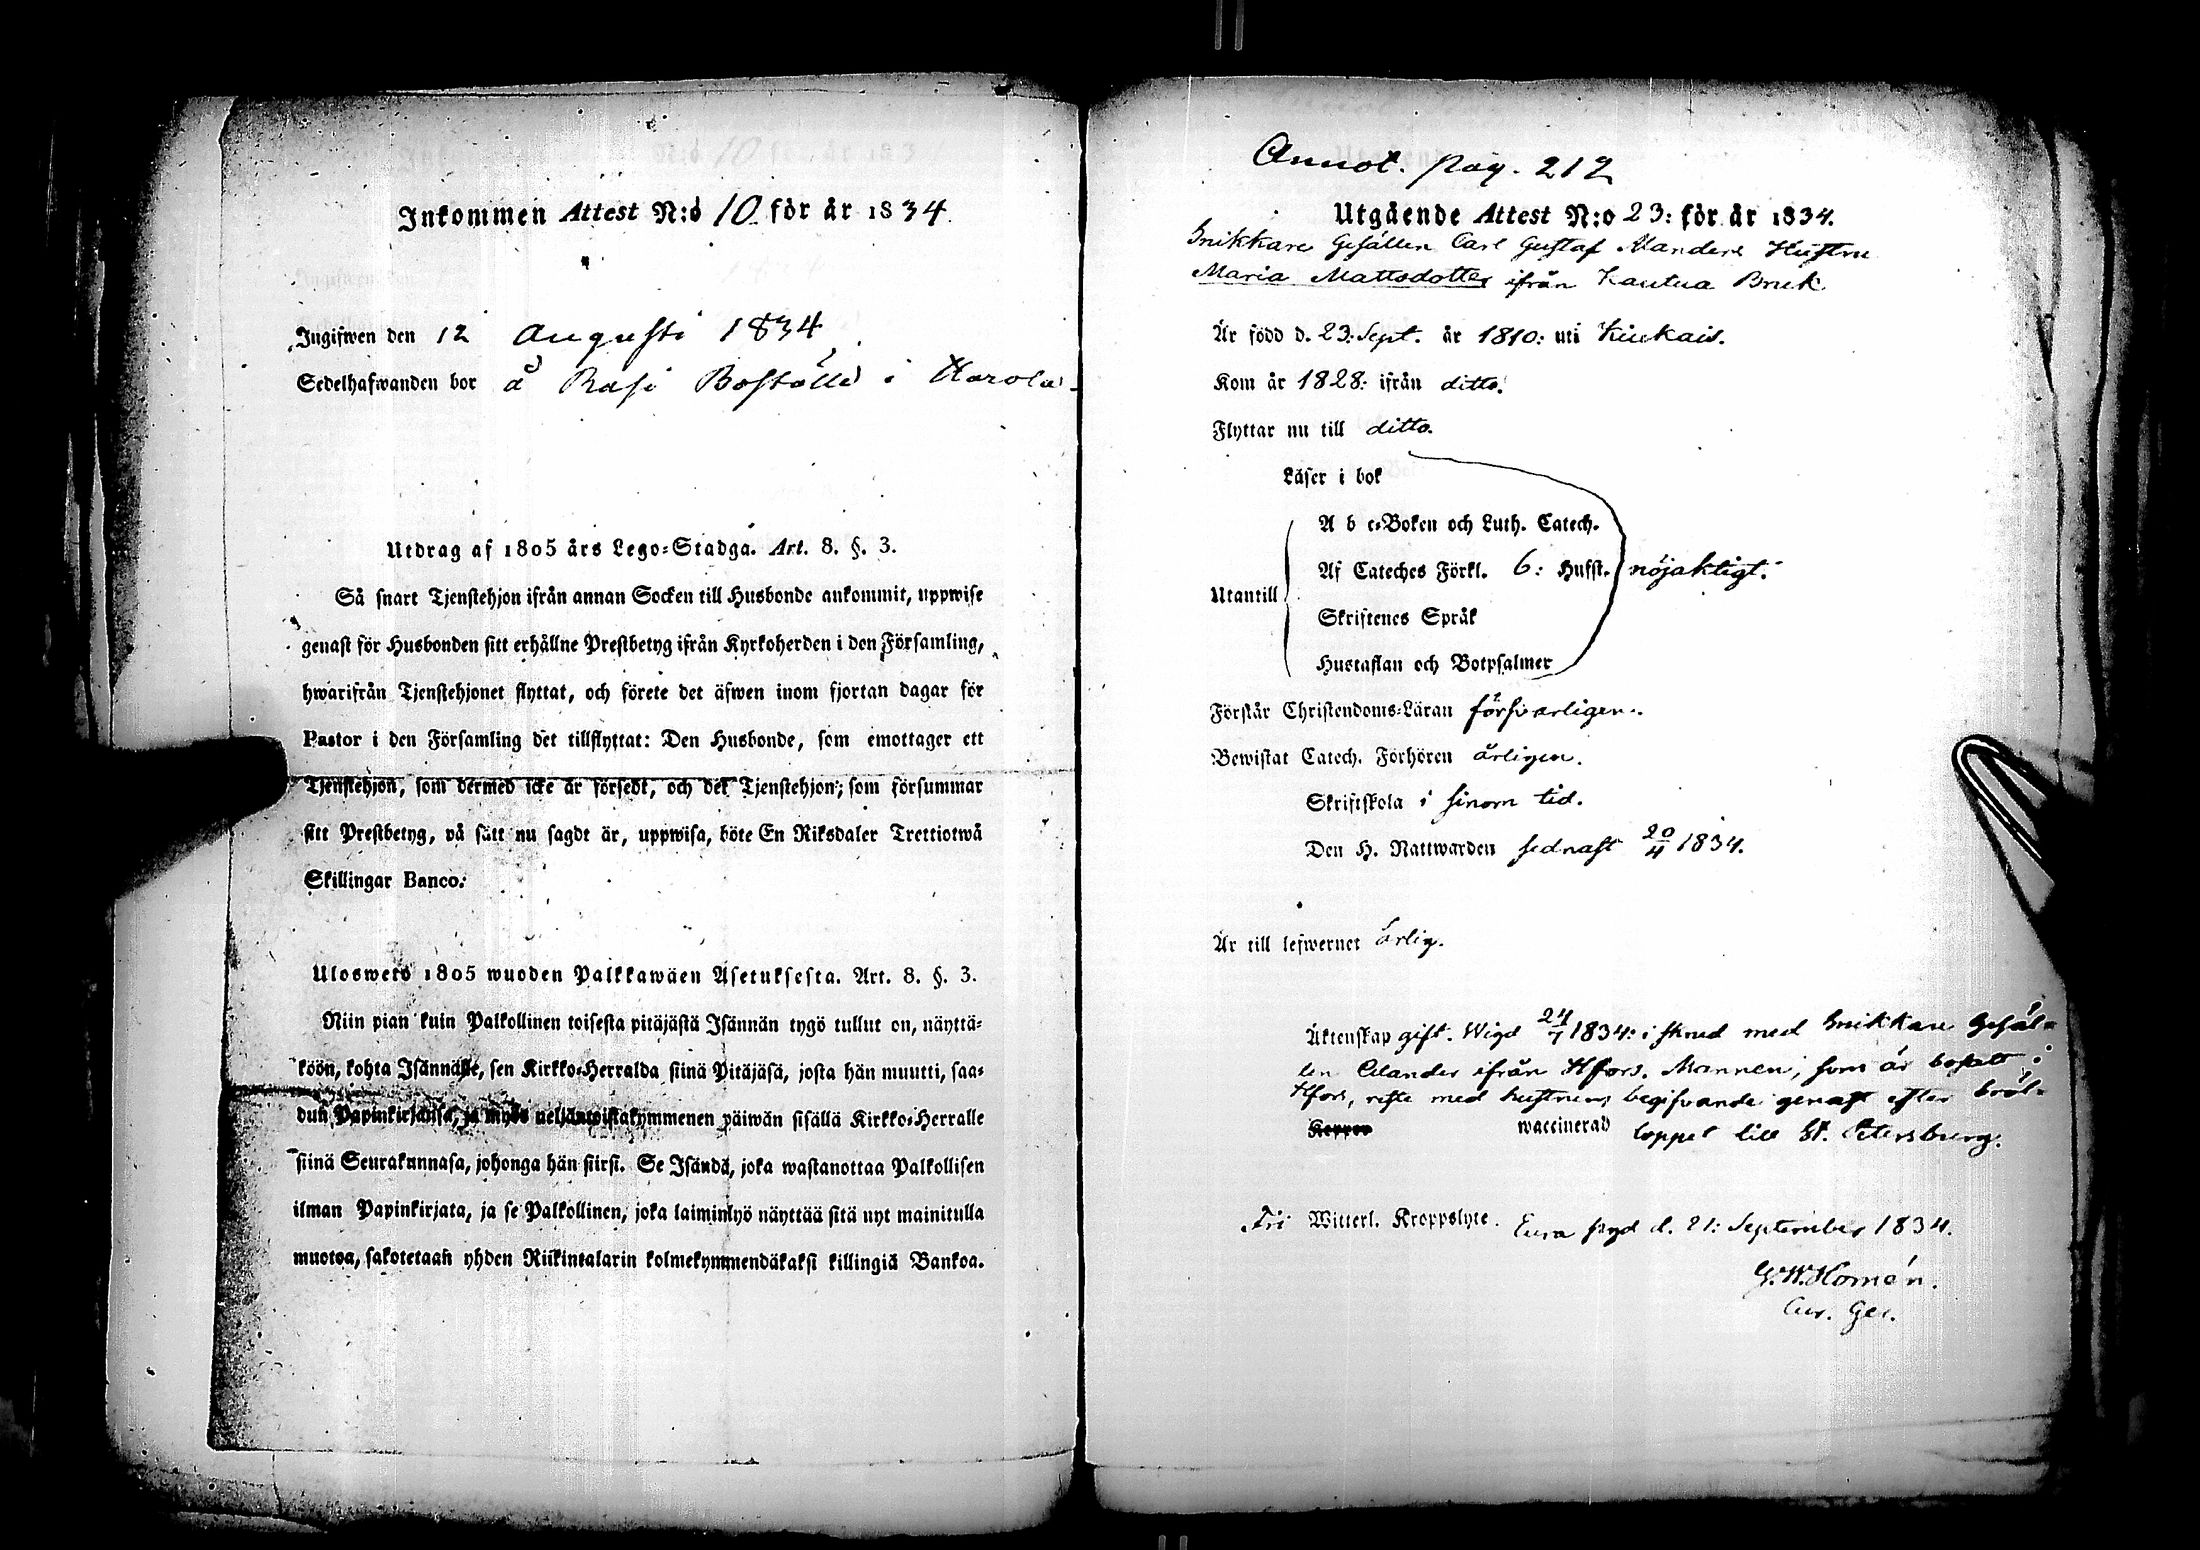 Inkommen Attest N:o 10 för år 1834.
Ingifwen den 12 Augusti 1834
Sedelhafwanden bor å Rasi Boställe i Karola
Utdrag af 1805 års Lego-Stadga. Art. 8. §. 3.
Så snart Tjenstehjon ifrån annan Socken till Husbonde ankommit, uppwise
genast för Husbonden sitt erhållne Prestbetyg ifrån Kyrkoherden i den Församling,
hwarifrån Tjenstehjonet flyttat, och förete det äfwen inom fjortan dagar för
Pastor i den Församling det tillflyttat: Den Husbonde, som emottager ett
Tjenstehjon, som dermed icke är försedt, och det Tjenstehjon, som försummar
sitt Prestbetyg, på sätt nu sagdt är, uppwisa, böte En Riksdaler Trettiotwå
Skillingar Banco.
Uloswetö 1805 wuoden Palkkawäen Asetuksesta. Art. 8. §. 3.
Niin pian kuin Palkollinen toisesta pitäjästä Isännän tygö tullut on, näyttä-
köön, kohta Isännälle, sen Kirkko-Herralda siinä Pitäjäsä, josta hän muutti, saa-
dun Papinkirjansa, ja myös neljäntoistakymmenen päiwän sisällä Kirkko-Herralle
siinä Seurakunnasa, johonga hän siirsi. Se Isändä, joka wastanottaa Palkollisen
ilman Papinkirjata, ja se Palkollinen, joka laiminlyö näyttää sitä nyt mainitulla
muotoa, sakotetaan yhden Riikintalarin kolmekymmendäkaksi killingiä Bankoa.
Annot. pag. 212
Utgående Attest N:o 23: för år 1834.
Snikkare Gesällen Carl Gustaf Hustru
Maria Mattsdotter ifrån Kautua Bruk
Är född d. 23: Sept. år 1810: uti Kiukais.
Kom år 1828: ifrån ditto.
Flyttar nu till ditto.
Läser i bok
A b c-Boken och Luth. Catech.
Af Cateches Förkl. 6: Hufst. nöjaktigt.
Utantill
Skriftenes Språk
Hustaflan och Botpsalmer
Förstår Christendoms-Läran försvarligen.
Bewistat Catech. Förhören årligen.
Skriftskola i sinom tid.
Den H. Nattwarden sednast 20/4 1834.
Är till lefwernet ärlig.
Äktenskap gift. Wigd 24/7 1834: med Snikkare Gesäl-
len ifrån Hfors. Mannen, som är bosatt i
Hfors, reste med hustruns begifvande genast efter bröl-
Koppor waccinerad loppet till St. Petersburg.
Fri Witterl. Kroppslyte. Eura pgd d. 21: September 1834.
G. W. Homén.
Cur. Ger.